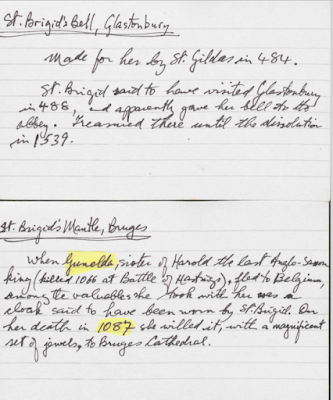 St. Brigid's Bell, Glastonbury
Made for her by St. Gildas in 484.
St. Brigid said to have visited Glastonbury
in 488, and apparently gave her bell to its
abbey. Treasured there until the dissolution
in 1539.
St. Brigid's Mantle, Bruges
When Gunelda, sister of Harold the last Anglo-Saxon
king (killed 1066 at Battle of Hastings), fled to Belgium,
among the valuables she took with her was a
cloak said to have been worn by St. Brigid. On
her death in 1087 she willed it, with a magnificent
set of jewels, to Bruges Cathedral.